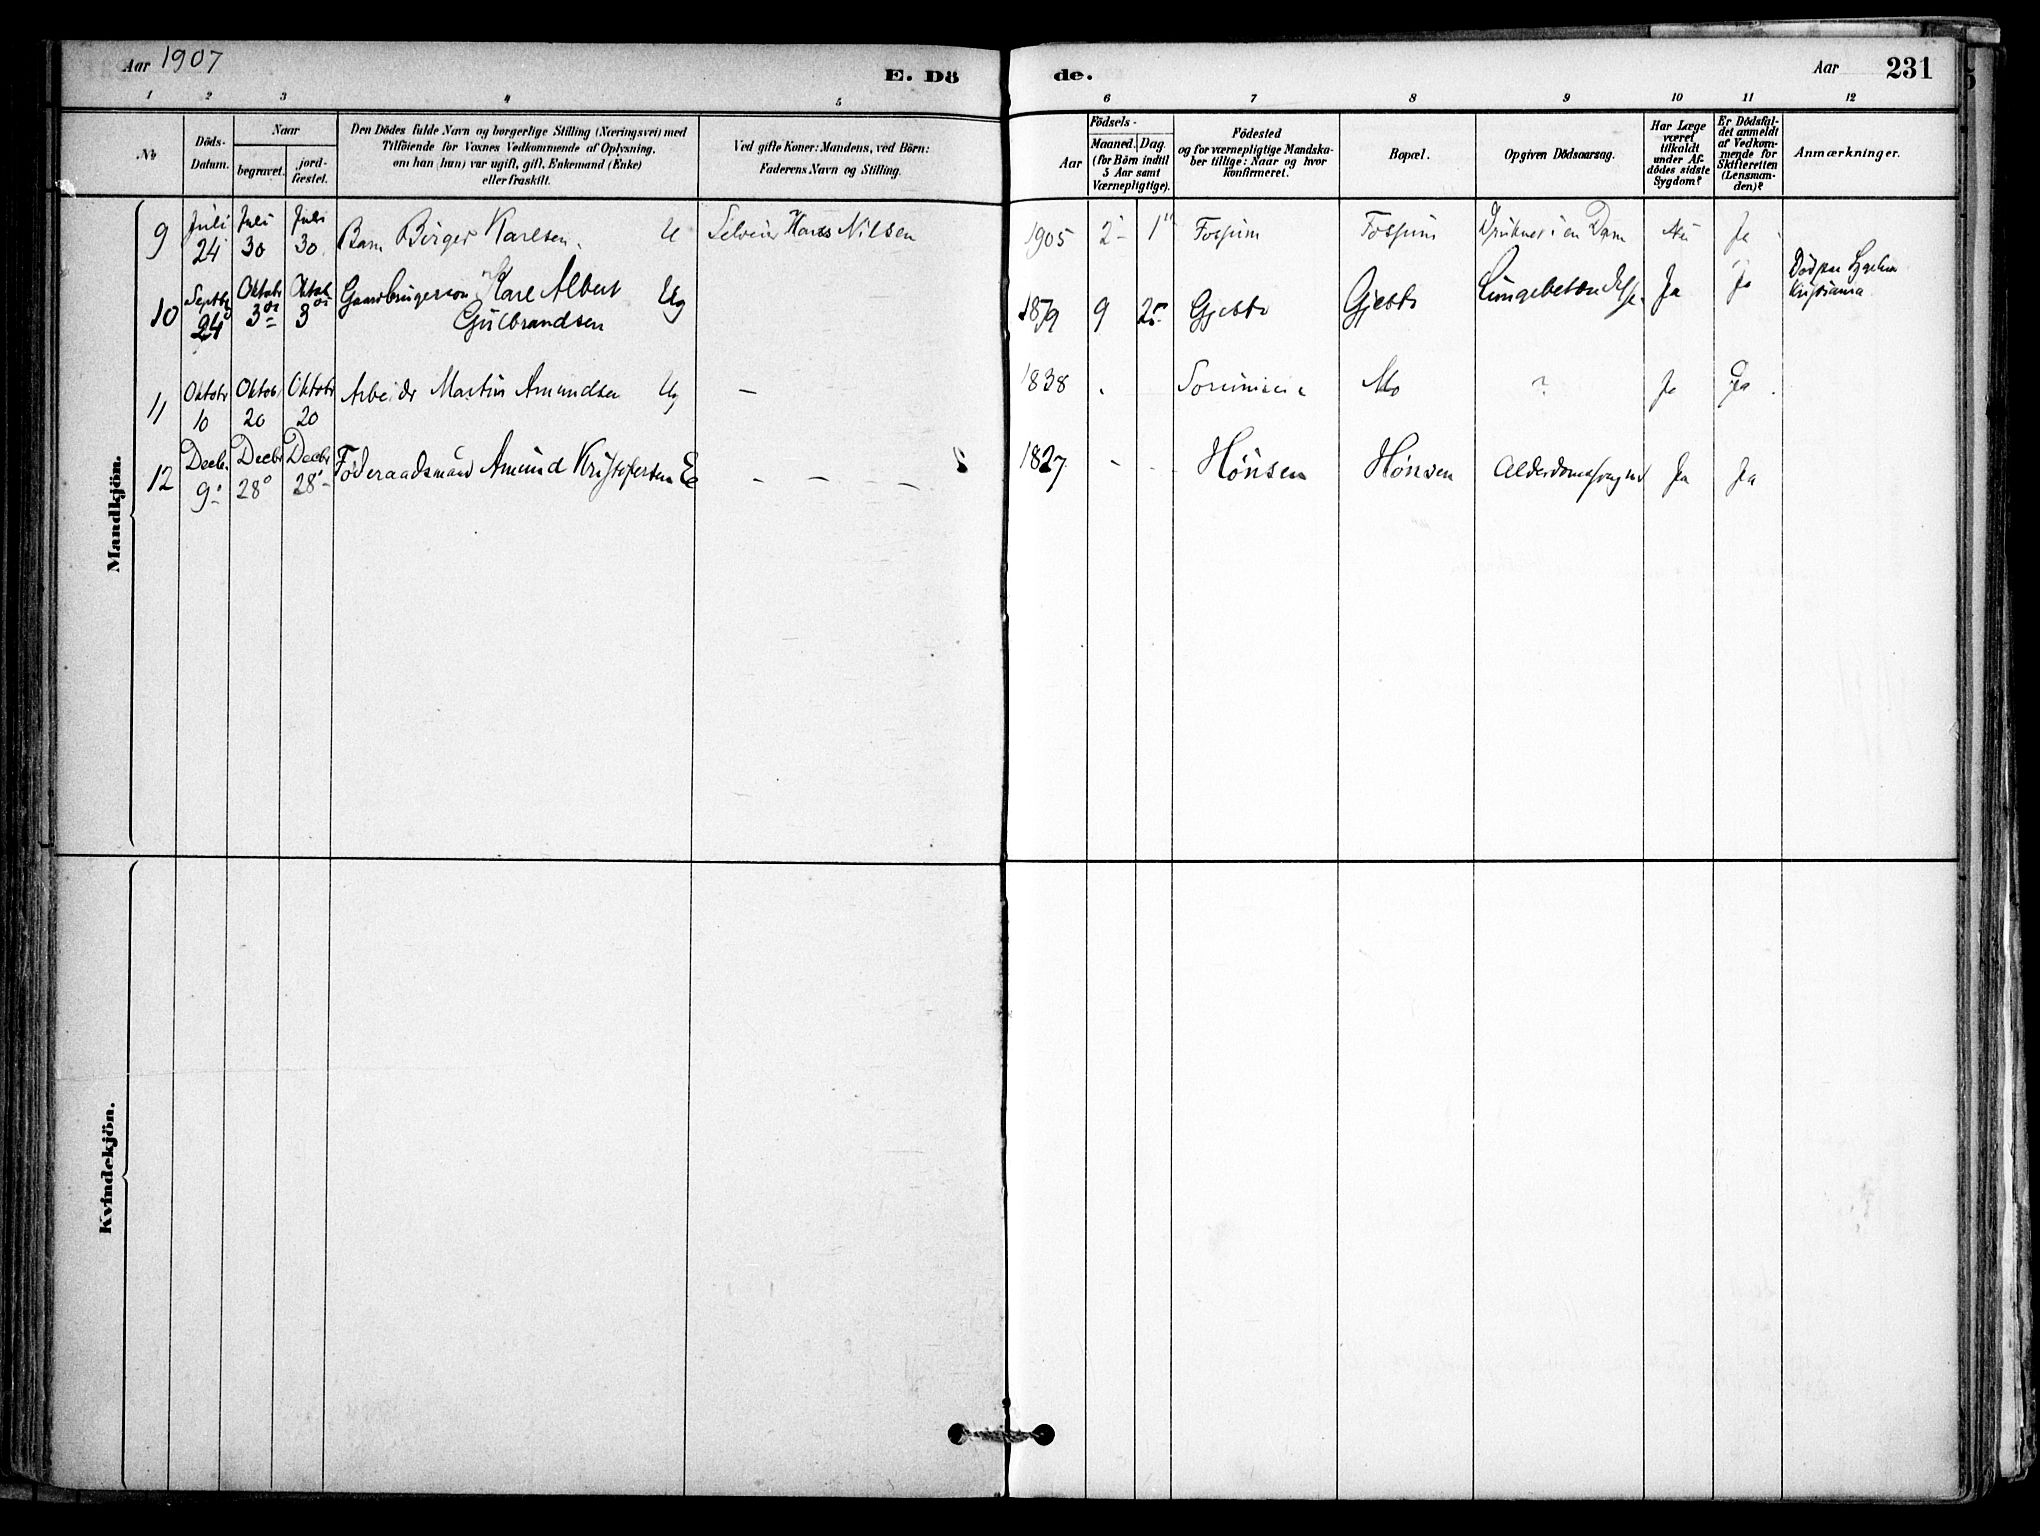 Aar 1907
E. Dö
de.
Aar
231
1 2 3 4 5
6 7 8 9 10 11 12
No
Döds-
Datum.
Naar
begravet.
jord-
fæstet.
Den Dödes fulde Navn og borgerlige Stilling (Næringsvei) med
Tilföiende for Voxnes Vedkommende af Oplysning,
om han (hun) var ugift, gift, Enkemand (Enke)
eller fraskilt.
Ved gifte Koner: Mandens, ved Börn:
Faderens Navn og Stilling.
Födsels-
Aar
Maaned.
Dag.
(for Börn indtil
5 Aar samt
Værnepligtige).
Födested
og for værnepligtige Mandska-
ber tillige: Naar og hvor
konfirmeret.
Bopæl.
Opgiven Dödsaarsag.
Har Læge
været
tilkaldt
under Af-
dödes sidste
Sygdom?
Er Dödsfal-
det anmeldt
af Vedkom-
mende for
Skifteretten
(Lensman-
den)?
Anmærkninger.
Mandkjön.
9 Juli 24 Juli 30 Juli 30 Barn Birger Karlsen. U Hans Nilsen 1905 2 1 Fossum Fossum i en Dam Nei Ja
10 Septbr 24 Oktobr 3 Oktob 3 Gaardbrugerson Karl Albert Ug 1879 9 Gjestv Gjestv Ja Ja
Gulbrandsen
Kristiania
11 Oktobr 10 Oktob 20 Oktobr 20 Arbeider Martin Amundsen Ug – 1838 Mo ? Ja Ja
12 Decb. 9 Decbr 28 Decbr 28 Föderaadsmand Amund Kristofersen E – – – 1827 - - Hönsen Hönsen Ja Ja
Kvindekjön.